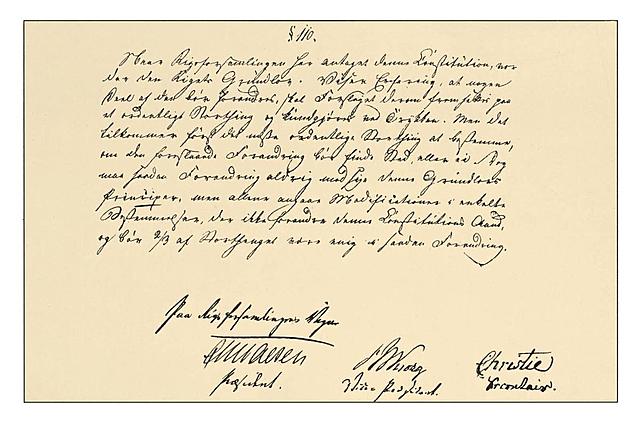 § 110.
Naar Rigsforsamlingen har antaget denne Constitution, vor-
der den Rigets Grundlov. Viser Erfaring, at nogen
Deel af den bør forandres, skal Forslaget derom fremsættes paa
et ordentligt Storthing og kundgjøres ved Trykken. Men det
tilkommer først det næste ordentlige Storthing at bestemme,
om den foreslaaede Forandring bør finde Sted, eller ei. Dog
maa saadan Forandring aldrig modsige denne Grundlovs
Principer, men alene angaae Modificationer i enkelte
Bestemmelser, der ikke forandre denne Constitutions Aand,
og bør 2/3 af Storthinget være enig i saadan Forandring.
Paa Rigsforsamlingens Vegne
Præsident. Vice Præsident. Christie
Secretair.